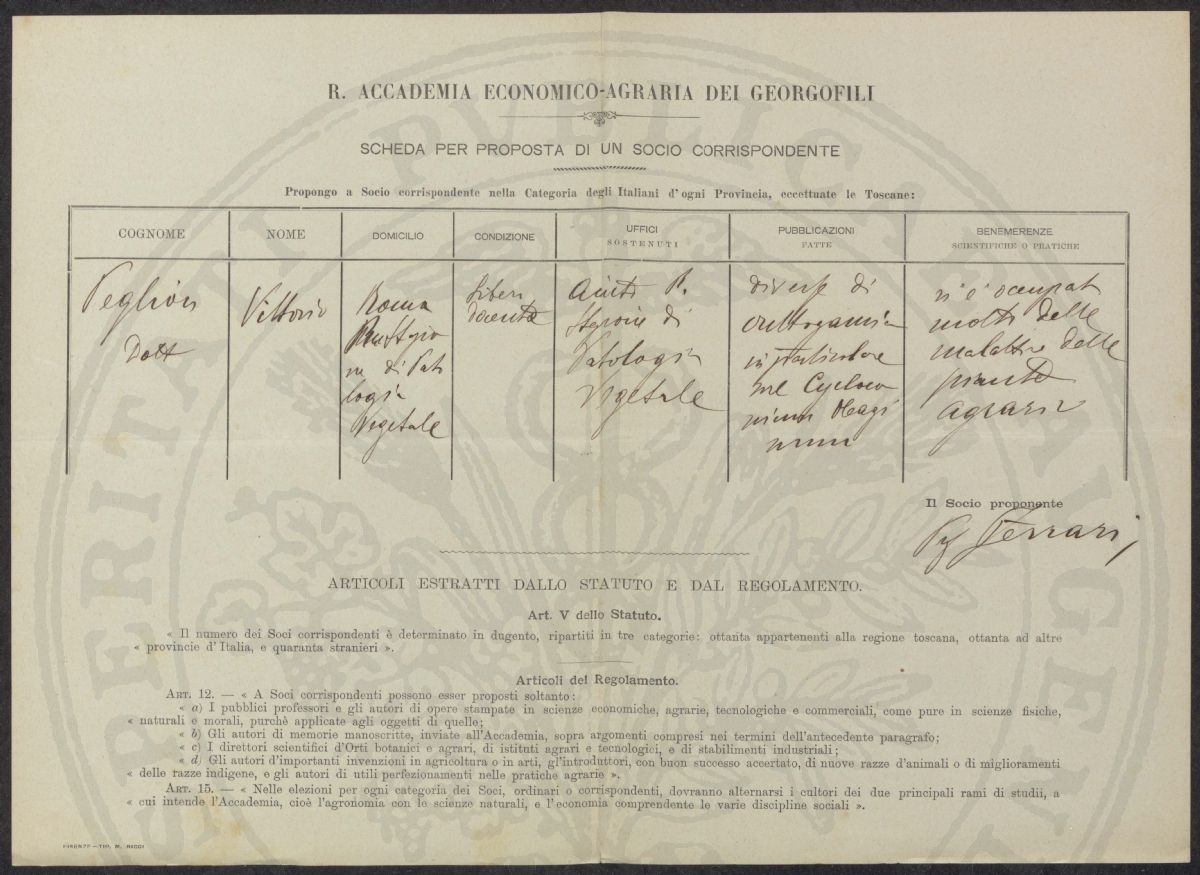 R. ACCADEMIA ECONOMICO-AGRARIA DEI GEORGOFILI
SCHEDA PER PROPOSTA DI UN SOCIO CORRISPONDENTE
Propongo a Socio corrispondente nella Categoria degli Italiani d'ogni Provincia, eccettuate le Toscane:
COGNOME
NOME
DOMICILIO
CONDIZIONE
UFFICI
SOSTENUTI
PUBBLICAZIONI
FATTE
BENEMERENZE
SCIENTIFICHE O PRATICHE
Peglion
Dott
Vittorio
Roma
di Pato
logia
Vegetale
Libero
docente
Aiuto R.
Stazione di
Patologia
Vegetale
diverse di
crittogamia
in particolare
sul Cycloco
nium Oleagi
num
si è occupato
molto delle
malattie delle
piante
agrarie
Il Socio proponente
Ferrari
ARTICOLI ESTRATTI DALLO STATUTO E DAL REGOLAMENTO.
Art. V dello Statuto.
« Il numero dei Soci corrispondenti è determinato in dugento, ripartiti in tre categorie: ottanta appartenenti alla regione toscana, ottanta ad altre
« provincie d'Italia, e quaranta stranieri ».
Articoli del Regolamento.
ART. 12. — « A Soci corrispondenti possono esser proposti soltanto:
« a) I pubblici professori e gli autori di opere stampate in scienze economiche, agrarie, tecnologiche e commerciali, come pure in scienze fisiche,
« naturali e morali, purchè applicate agli oggetti di quelle;
« b) Gli autori di memorie manoscritte, inviate all'Accademia, sopra argomenti compresi nei termini dell'antecedente paragrafo;
« c) I direttori scientifici d'Orti botanici e agrari, di istituti agrari e tecnologici, e di stabilimenti industriali;
« d) Gli autori d'importanti invenzioni in agricoltura o in arti, gl'introduttori, con buon successo accertato, di nuove razze d'animali o di miglioramenti
« delle razze indigene, e gli autori di utili perfezionamenti nelle pratiche agrarie ».
ART. 15. — « Nelle elezioni per ogni categoria dei Soci, ordinari o corrispondenti, dovranno alternarsi i cultori dei due principali rami di studii, a
« cui intende l'Accademia, cioè l'agronomia con le scienze naturali, e l'economia comprendente le varie discipline sociali ».
FIRENZE — TIP. M. RICCI